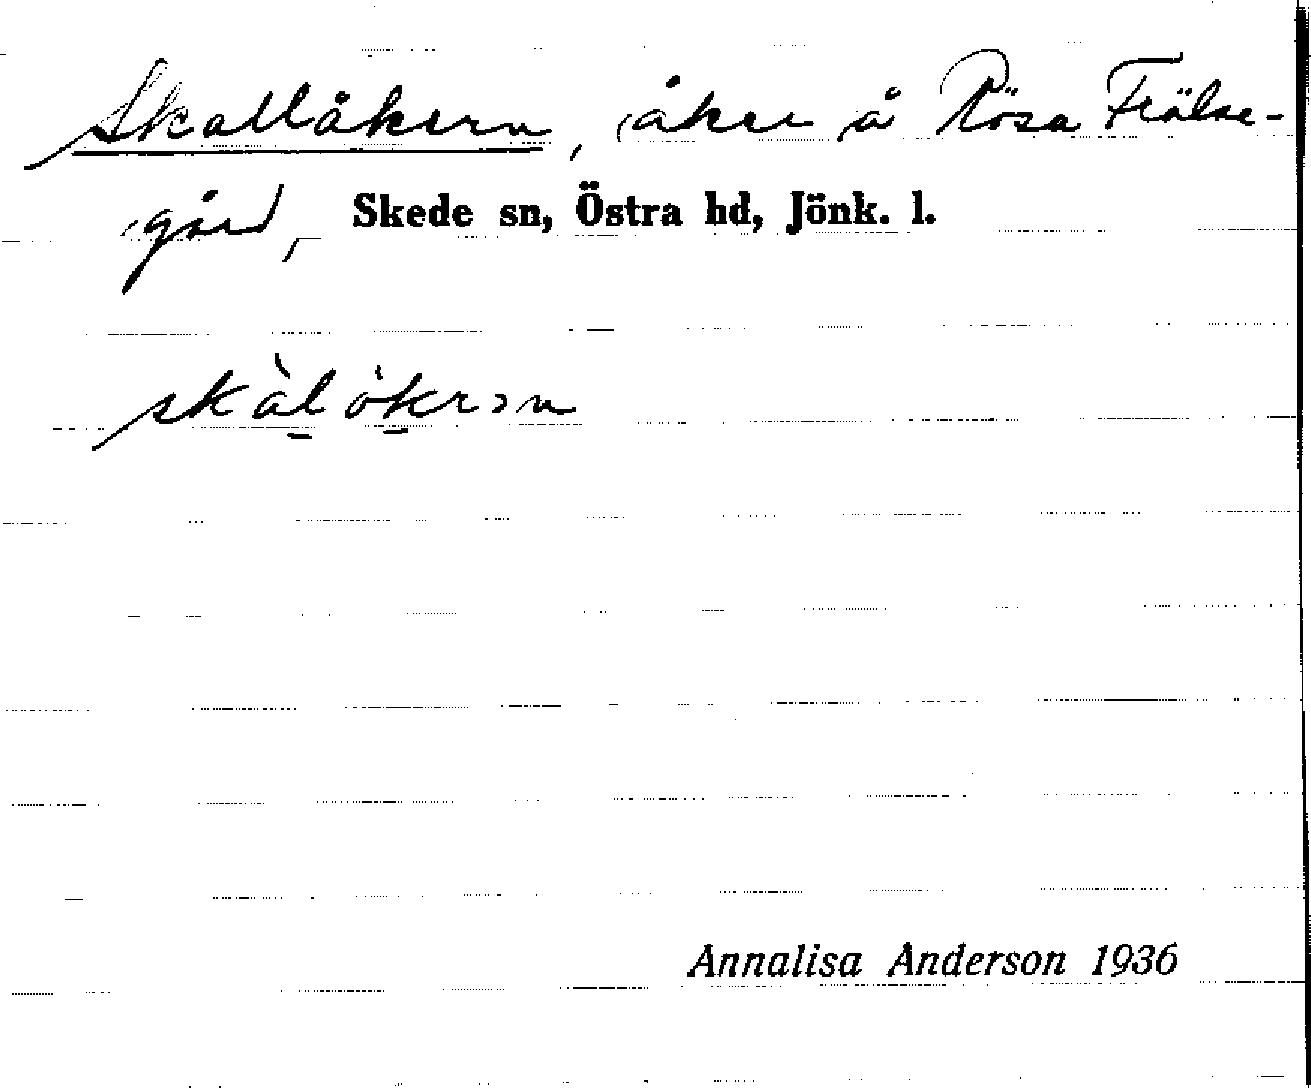 Skallåkern, åker å Rösa Frälse-
gård, Skede sn, Östra hd, Jönk. l.
skàlòkrɔn
Annalisa Anderson 1936